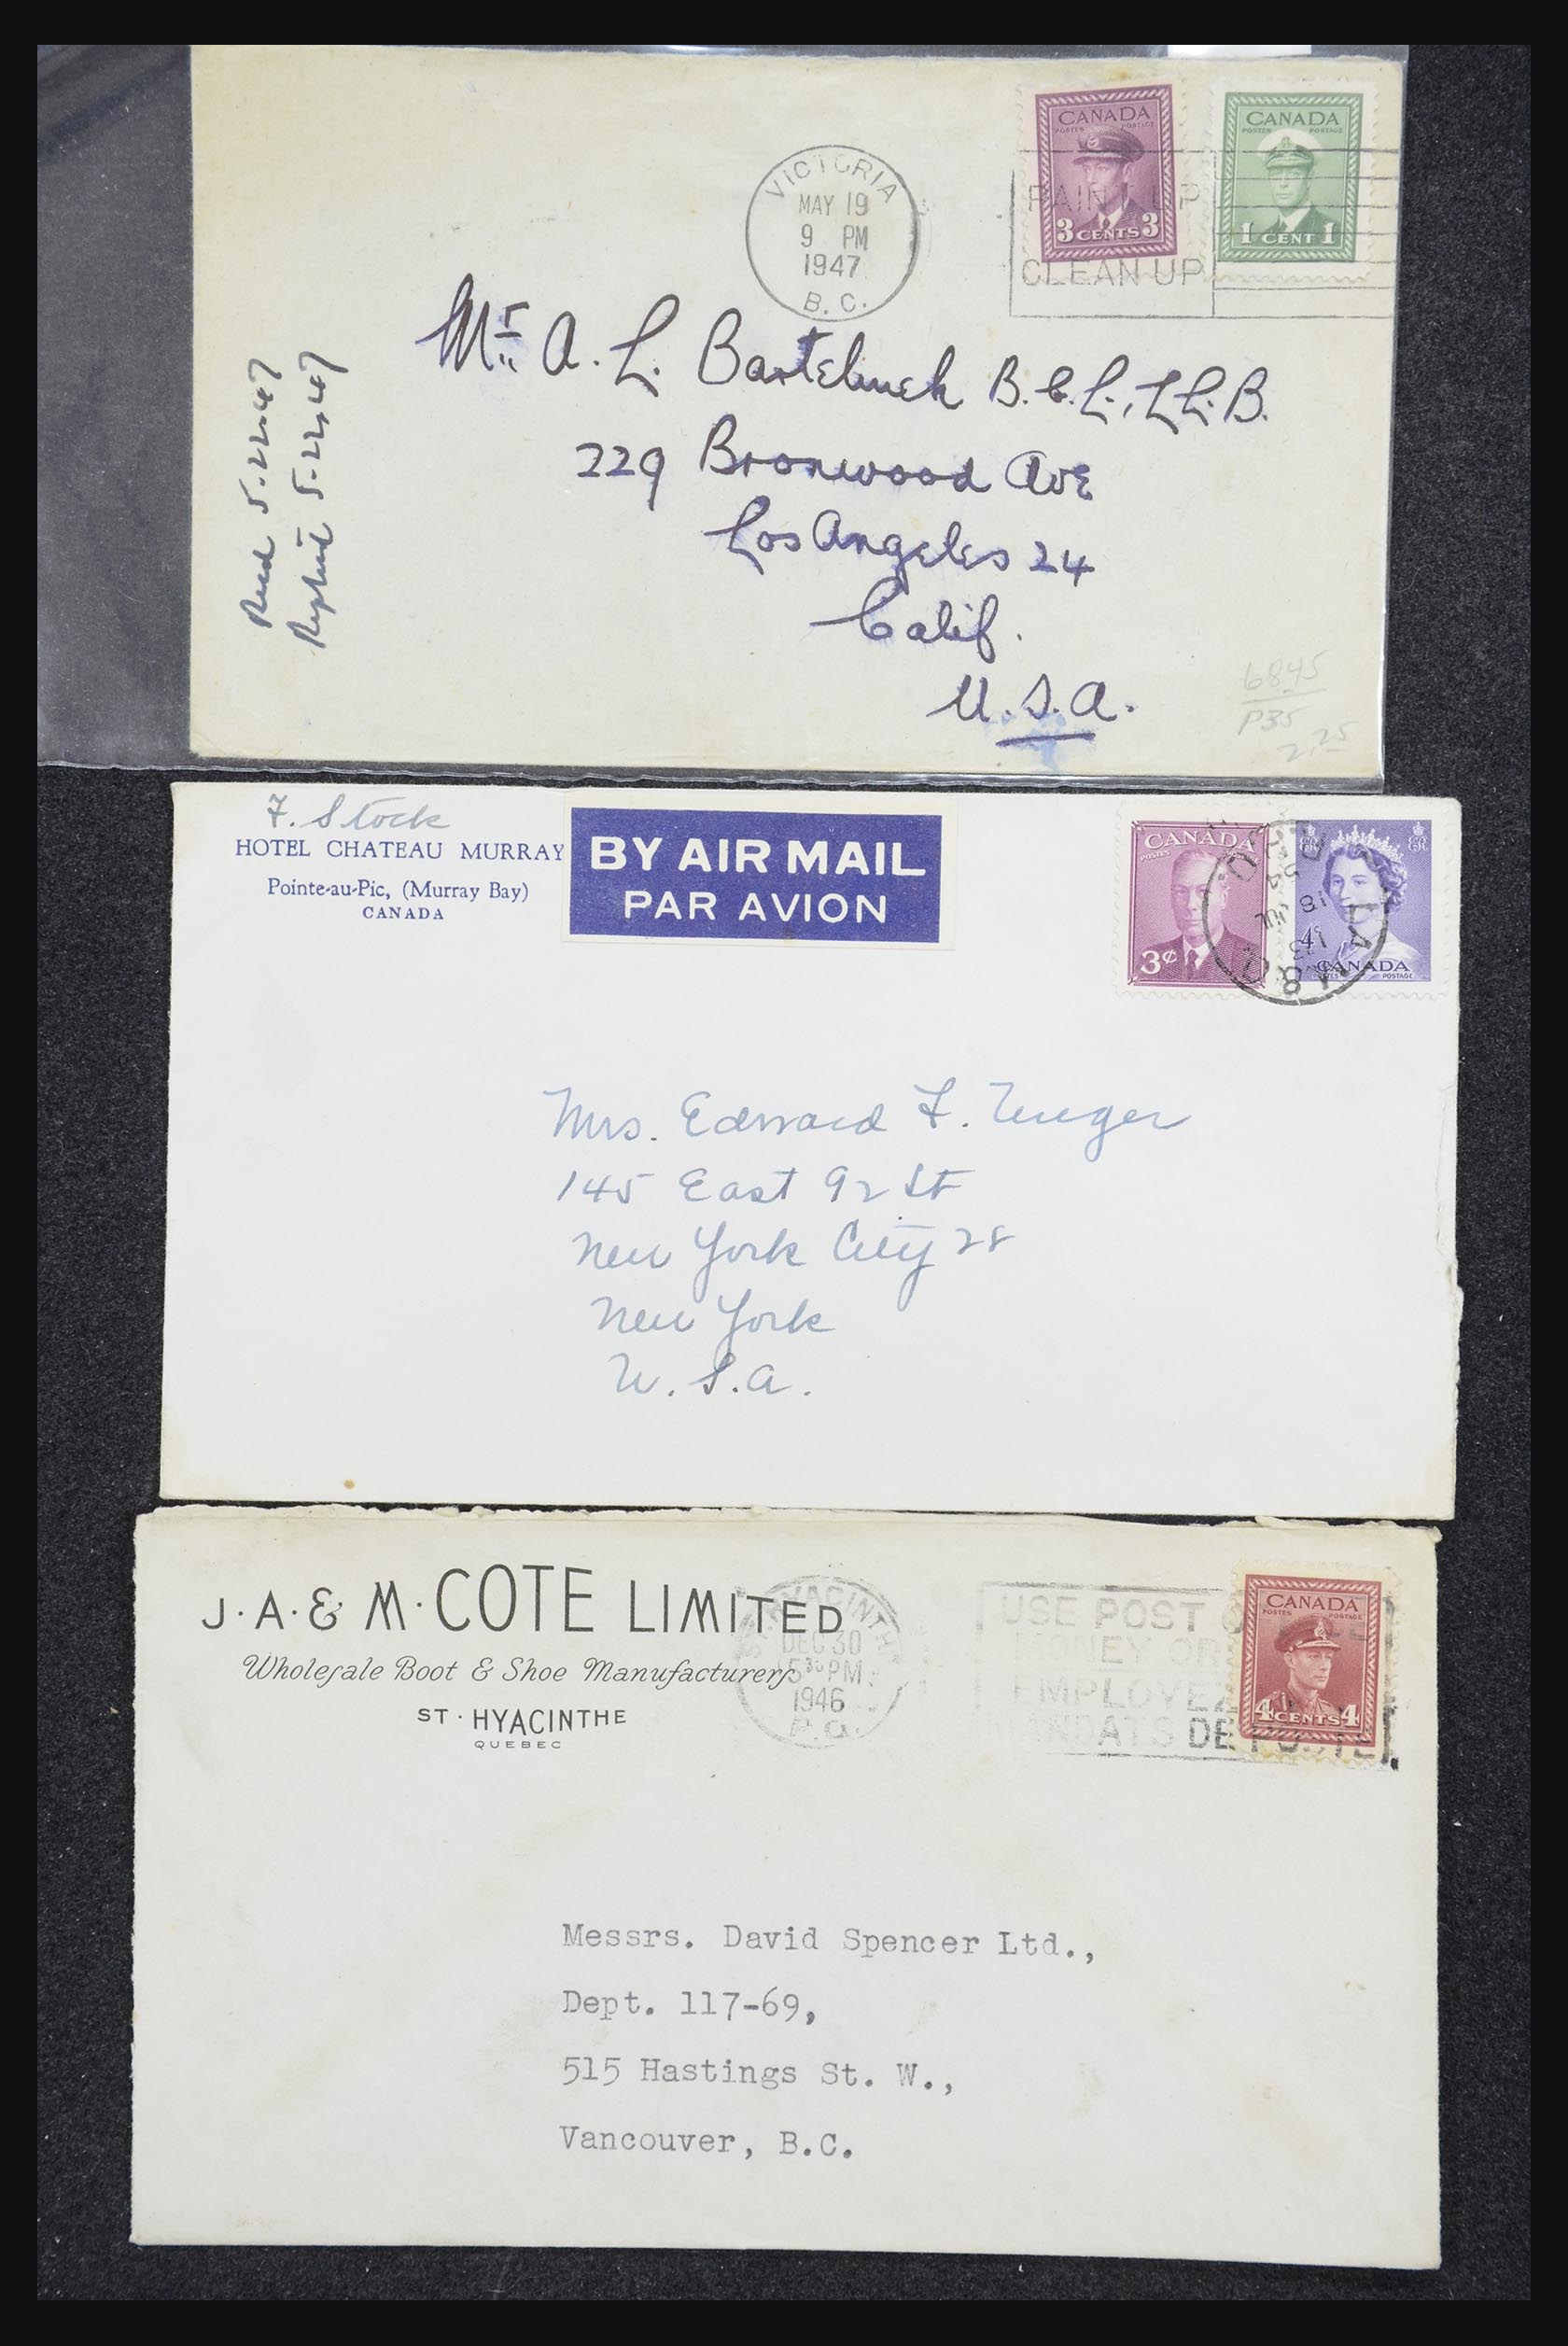 CANADA
POSTES POSTAGE
3 CENTS 3
CANADA
POSTES POSTAGE
1 CENT 1
VICTORIA
MAY 19
9 PM
1947
B.C.
PAINT UP
CLEAN UP
Mr. A. L. Bartelmek B.C.L., LL.B.
229 Bronwood Ave
Los Angeles 24
Calif.
U.S.A.
Recd 5-22-47
Replied 5-22-47
6845
P35
2.25
F. Stock
HOTEL CHATEAU MURRAY
Pointe-au-Pic, (Murray Bay)
CANADA
BY AIR MAIL
PAR AVION
CANADA
POSTES
3¢
4¢
CANADA
POSTES POSTAGE
18 JUL
54
Mrs. Edward F.
145 East 92 St
New York City 28
New York
U.S.A.
J.A. & M. COTE LIMITED
Wholesale Boot & Shoe Manufacturers
ST. HYACINTHE
QUEBEC
ST. HYACINTHE
DEC 30
5 30 PM
1946
P.Q.
USE POST
MONEY OR
EMPLOYEZ
MANDATS DE POSTE
CANADA
POSTES POSTAGE
4 CENTS 4
Messrs. David Spencer Ltd.,
Dept. 117-69,
515 Hastings St. W.,
Vancouver, B.C.